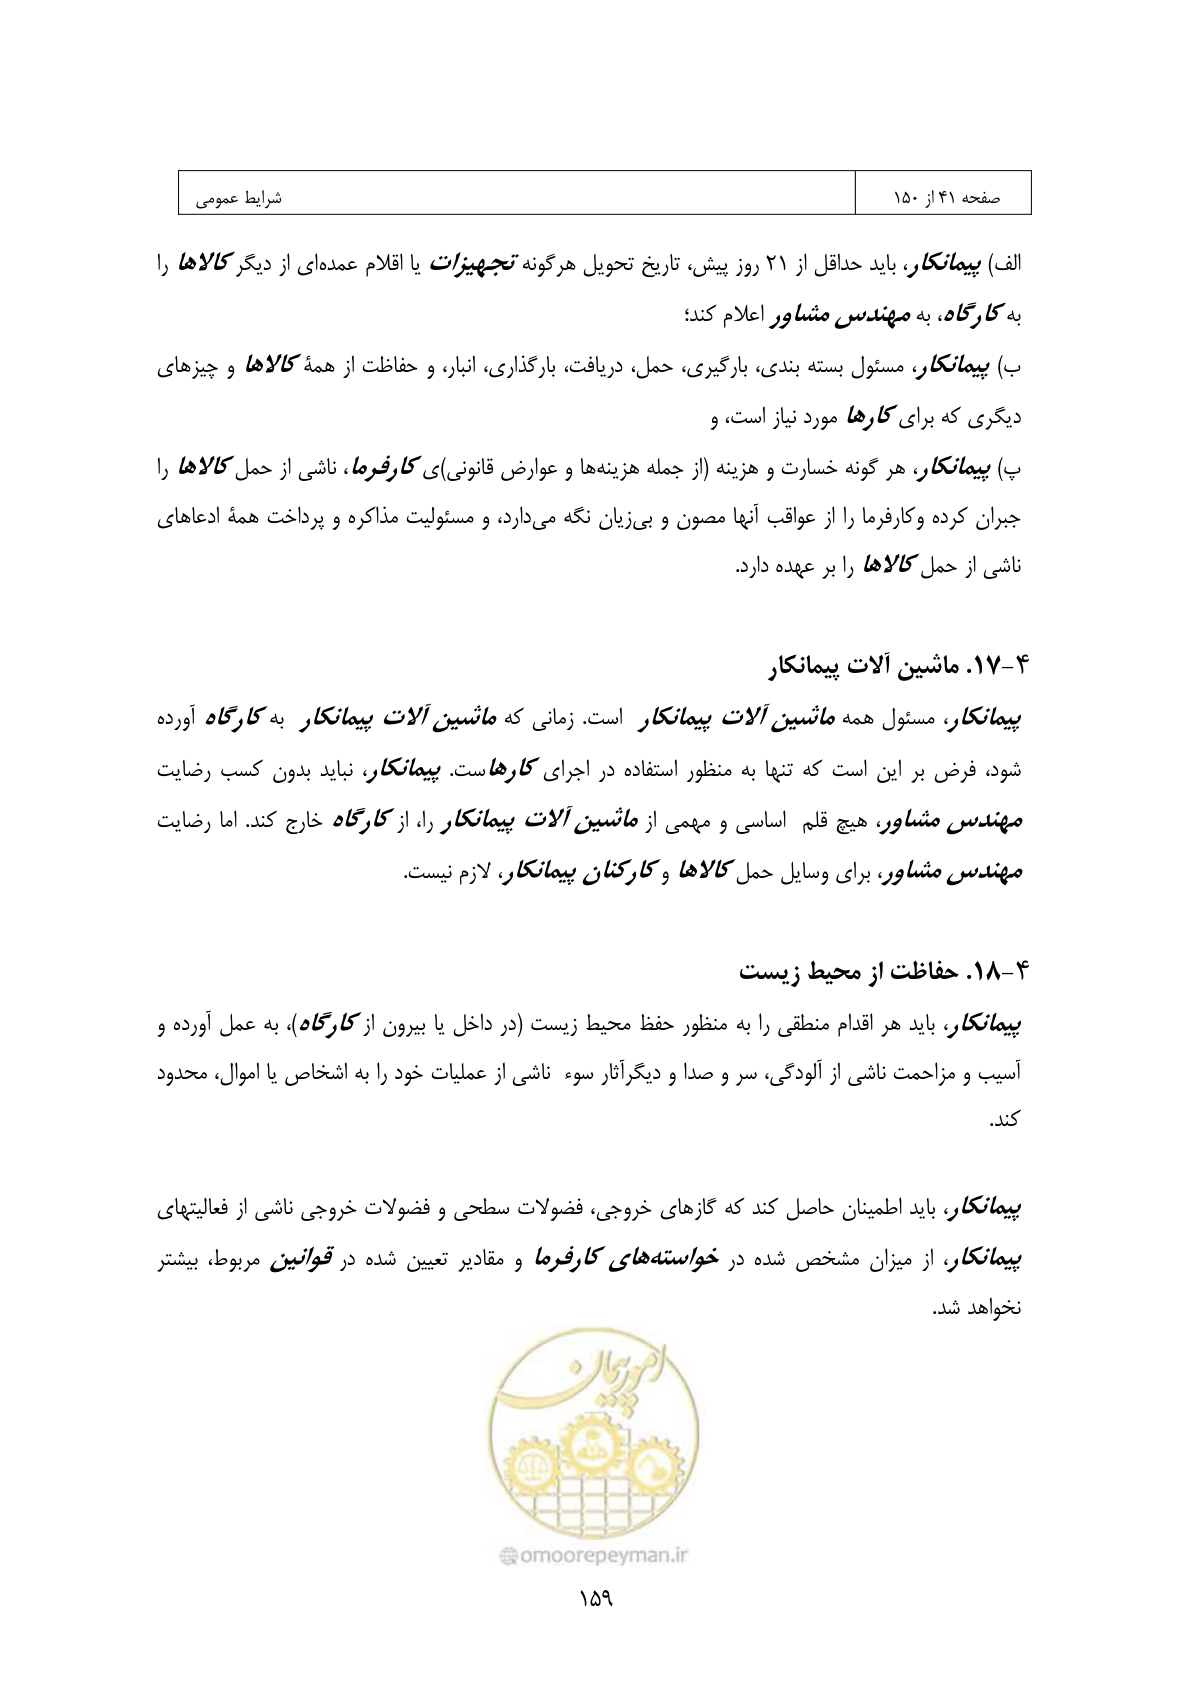 صفحه ۴۱ از ۱۵۰
شرایط عمومی
الف) پیمانکار، باید حداقل از ۲۱ روز پیش، تاریخ تحویل هرگونه تجهیزات یا اقلام عمده‌ای از دیگر کالاها را
به کارگاه، به مهندس مشاور اعلام کند؛
ب) پیمانکار، مسئول بسته بندی، بارگیری، حمل، دریافت، بارگذاری، انبار، و حفاظت از همهٔ کالاها و چیزهای
دیگری که برای کارها مورد نیاز است، و
پ) پیمانکار، هر گونه خسارت و هزینه (از جمله هزینه‌ها و عوارض قانونی)ی کارفرما، ناشی از حمل کالاها را
جبران کرده وکارفرما را از عواقب آنها مصون و بی‌زیان نگه می‌دارد، و مسئولیت مذاکره و پرداخت همهٔ ادعاهای
ناشی از حمل کالاها را بر عهده دارد.
۴-۱۷. ماشین آلات پیمانکار
پیمانکار، مسئول همه ماشین آلات پیمانکار است. زمانی که ماشین آلات پیمانکار به کارگاه آورده
شود، فرض بر این است که تنها به منظور استفاده در اجرای کارهاست. پیمانکار، نباید بدون کسب رضایت
مهندس مشاور، هیچ قلم اساسی و مهمی از ماشین آلات پیمانکار را، از کارگاه خارج کند. اما رضایت
مهندس مشاور، برای وسایل حمل کالاها و کارکنان پیمانکار، لازم نیست.
۴-۱۸. حفاظت از محیط زیست
پیمانکار، باید هر اقدام منطقی را به منظور حفظ محیط زیست (در داخل یا بیرون از کارگاه)، به عمل آورده و
آسیب و مزاحمت ناشی از آلودگی، سر و صدا و دیگرآثار سوء ناشی از عملیات خود را به اشخاص یا اموال، محدود
کند.
پیمانکار، باید اطمینان حاصل کند که گازهای خروجی، فضولات سطحی و فضولات خروجی ناشی از فعالیتهای
پیمانکار، از میزان مشخص شده در خواسته‌های کارفرما و مقادیر تعیین شده در قوانین مربوط، بیشتر
نخواهد شد.
امور پیمان
omoorepeyman.ir
۱۵۹